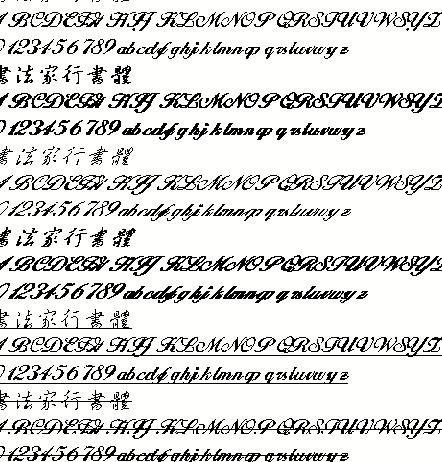 ABCDEFGHIJKLMNOPQRSTUVWXYZ
0123456789abcdefghijklmnopqrstuvwxyz
書法家行書體
ABCDEFGHIJKLMNOPQRSTUVWXYZ
0123456789abcdefghijklmnopqrstuvwxyz
書法家行書體
ABCDEFGHIJKLMNOPQRSTUVWXYZ
0123456789abcdefghijklmnopqrstuvwxyz
書法家行書體
ABCDEFGHIJKLMNOPQRSTUVWXYZ
0123456789abcdefghijklmnopqrstuvwxyz
書法家行書體
ABCDEFGHIJKLMNOPQRSTUVWXYZ
0123456789abcdefghijklmnopqrstuvwxyz
書法家行書體
ABCDEFGHIJKLMNOPQRSTUVWXYZ
0123456789abcdefghijklmnopqrstuvwxyz